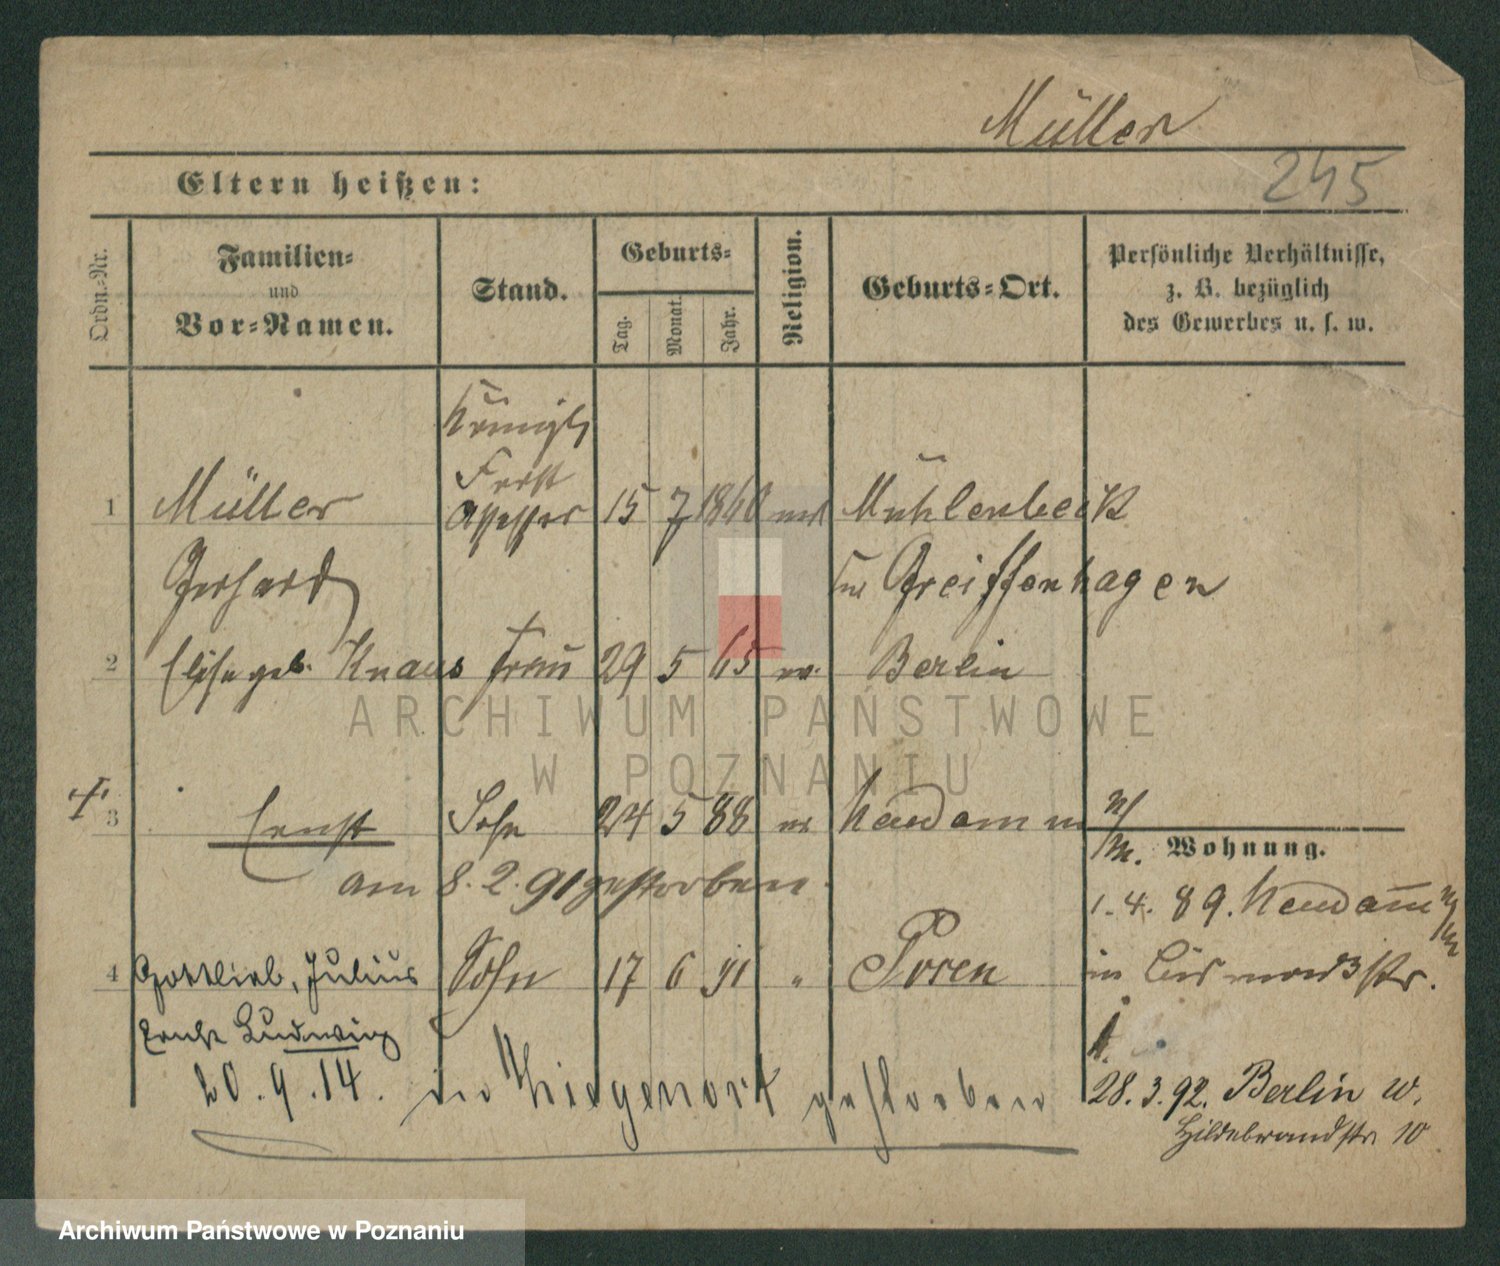 Müller
245
Eltern heißen:
Ordn.-Nr.
Familien-
und
Vor-Namen.
Stand.
Geburts-
Tag.
Monat.
Jahr.
Religion.
Geburts-Ort.
Persönliche Verhältnisse,
z. B. bezüglich
des Gewerbes u. s. w.
Königl
Forst
1 Müller Assessor 15 7 1860 Mühlenbeck
Gerhard Greiffenhagen
2 Elise geb. Knaus Frau 29 5 65 ev. Berlin
ARCHIWUM PAŃSTWOWE
W POZNANIU
3 Ernst Sohn 24 5 88 Neudamm
Wohnung.
am 8. 2. 91 gestorben
1. 4. 89. Neudamm
4 Gottlieb, Julius Sohn 17 6 91 " Posen
in Bismarckstr.
Ernst Ludwig
20. 9. 14. in gestorben
28. 3. 92. Berlin W.
Hildebrandstr 10
Archiwum Państwowe w Poznaniu